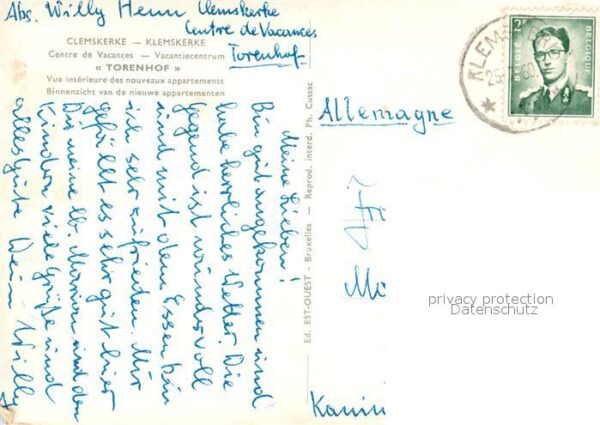 Abs. Willy Henn Clemskerke
Centre de Vacances
Torenhof
CLEMSKERKE — KLEMSKERKE
Centre de Vacances — Vacantiecentrum
« TORENHOF »
Vue intérieure des nouveaux appartements
Binnenzicht van de nieuwe appartementen
Meine Lieben!
Bin gut angekommen und
habe herrliches Wetter. Die
Gegend ist wundervoll
und mit dem Essen bin
ich sehr zufrieden. Mir
gefällt es sehr gut hier
Dir meine lb. Marion und den
Kindern viele Grüße und
alles Gute Dein Willy
Ed. EST-OUEST - Bruxelles — Reprod. interd. Ph. Cussac
Allemagne
2F
BELGIE BELGIQUE
KLEMS
privacy protection
Datenschutz